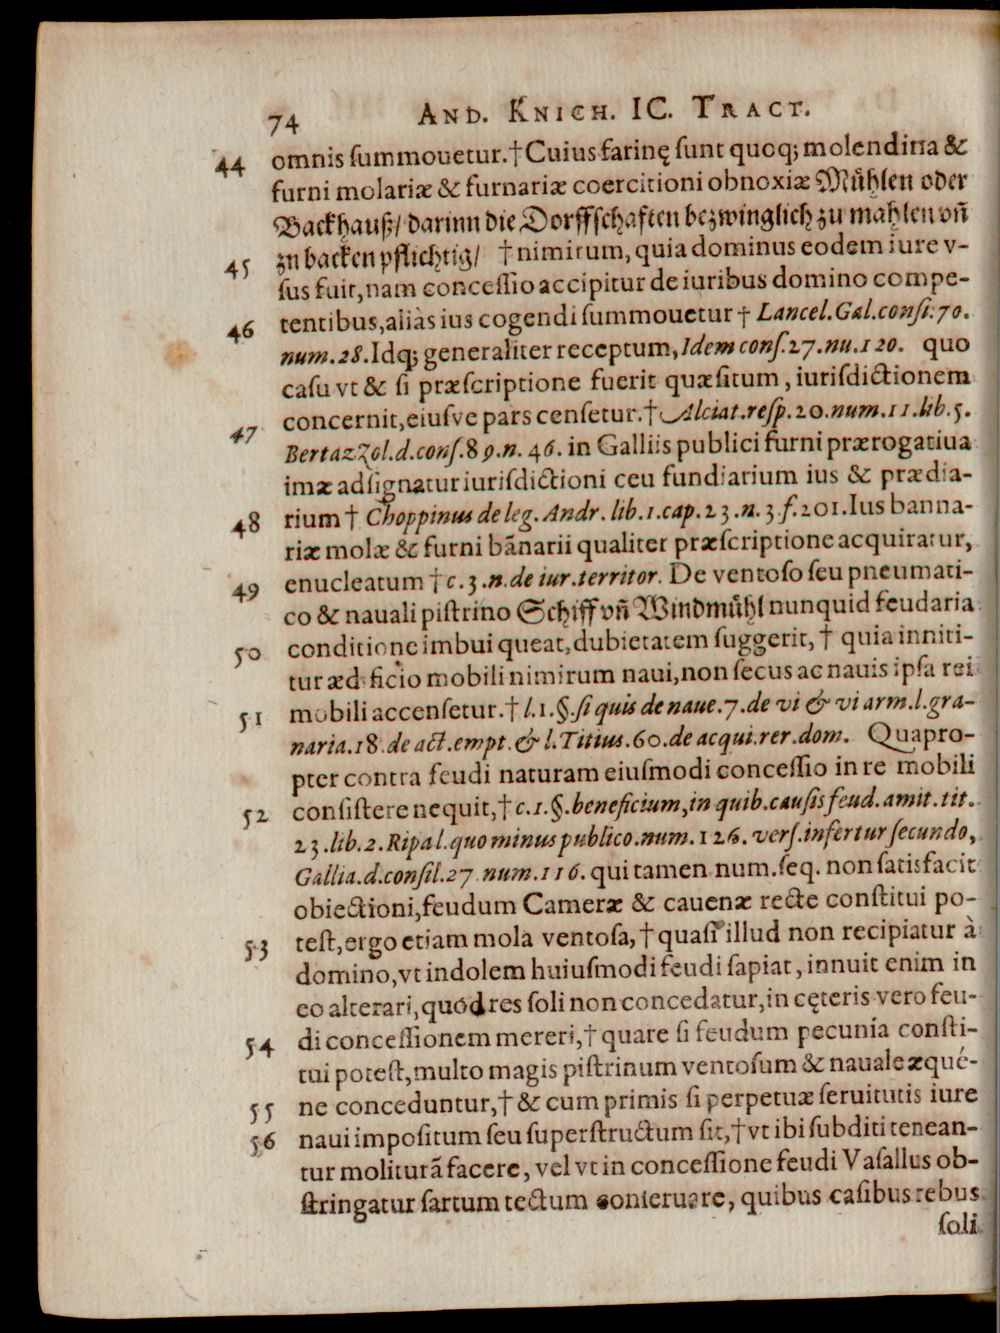 74 AND. KNICH. IC. TRACT.
44 omnis summouetur.†Cuius farinę sunt quoq; molendina &
furni molariæ & furnariæ coercitioni obnoxiæ Mühlen oder
Backhauß/ darinn die Dorffschafften bezwinglich zu mahlen vñ
45 zu backen pflichtig/ †nimirum, quia dominus eodem iure v-
sus fuit, nam concessio accipitur de iuribus domino compe-
46 tentibus, aliàs ius cogendi summouetur † Lancel. Gal. consi. 70.
num. 28. Idq; generaliter receptum, Idem cons. 27. nu. 120. quo
casu vt & si præscriptione fuerit quæsitum, iurisdictionem
47 concernit, eiusve pars censetur.† Alciat. resp. 20. num. 11. lib. 5.
Bertaz Zol. d. cons. 89. n. 46. in Galliis publici furni prærogatiua
imæ adsignatur iurisdictioni ceu fundiarium ius & prædia-
48 rium † Choppinus de leg. Andr. lib. 1. cap. 23. n. 3. f. 201. Ius banna-
riæ molæ & furni bãnarii qualiter præscriptione acquiratur,
49 enucleatum † c. 3. n. de iur. territor. De ventoso seu pneumati-
co & nauali pistrino Schiff vñ Windmühl nunquid feudaria
50 conditione imbui queat, dubietatem suggerit, † quia inniti-
tur ædificio mobili nimirum naui, non secus ac nauis ipsa rei
51 mobili accensetur.† l. 1. §. si quis de naue. 7. de vi & vi arm. l. gra-
naria. 18. de act. empt. & l. Titius. 60. de acqui. rer. dom. Quapro-
pter contra feudi naturam eiusmodi concessio in re mobili
52 consistere nequit, † c. 1. §. beneficium, in quib. causis feud. amit. tit.
23. lib. 2. Ripa l. quo minus publico. num. 126. vers. infertur secundo,
Gallia. d. consil. 27 num. 116. qui tamen num. seq. non satisfacit
obiectioni, feudum Cameræ & cauenæ recte constitui po-
53 test, ergo etiam mola ventosa, † quasi illud non recipiatur à
domino, vt indolem huiusmodi feudi sapiat, innuit enim in
eo alterari, quód res soli non concedatur, in cęteris vero feu-
54 di concessionem mereri, † quare si feudum pecunia consti-
tui potest, multo magis pistrinum ventosum & nauale æqué-
55 ne conceduntur, † & cum primis si perpetuæ seruitutis iure
56 naui impositum seu superstructum sit, † vt ibi subditi tenean-
tur moliturã facere, vel vt in concessione feudi Vasallus ob-
stringatur sartum tectum conseruare, quibus casibus rebus
soli